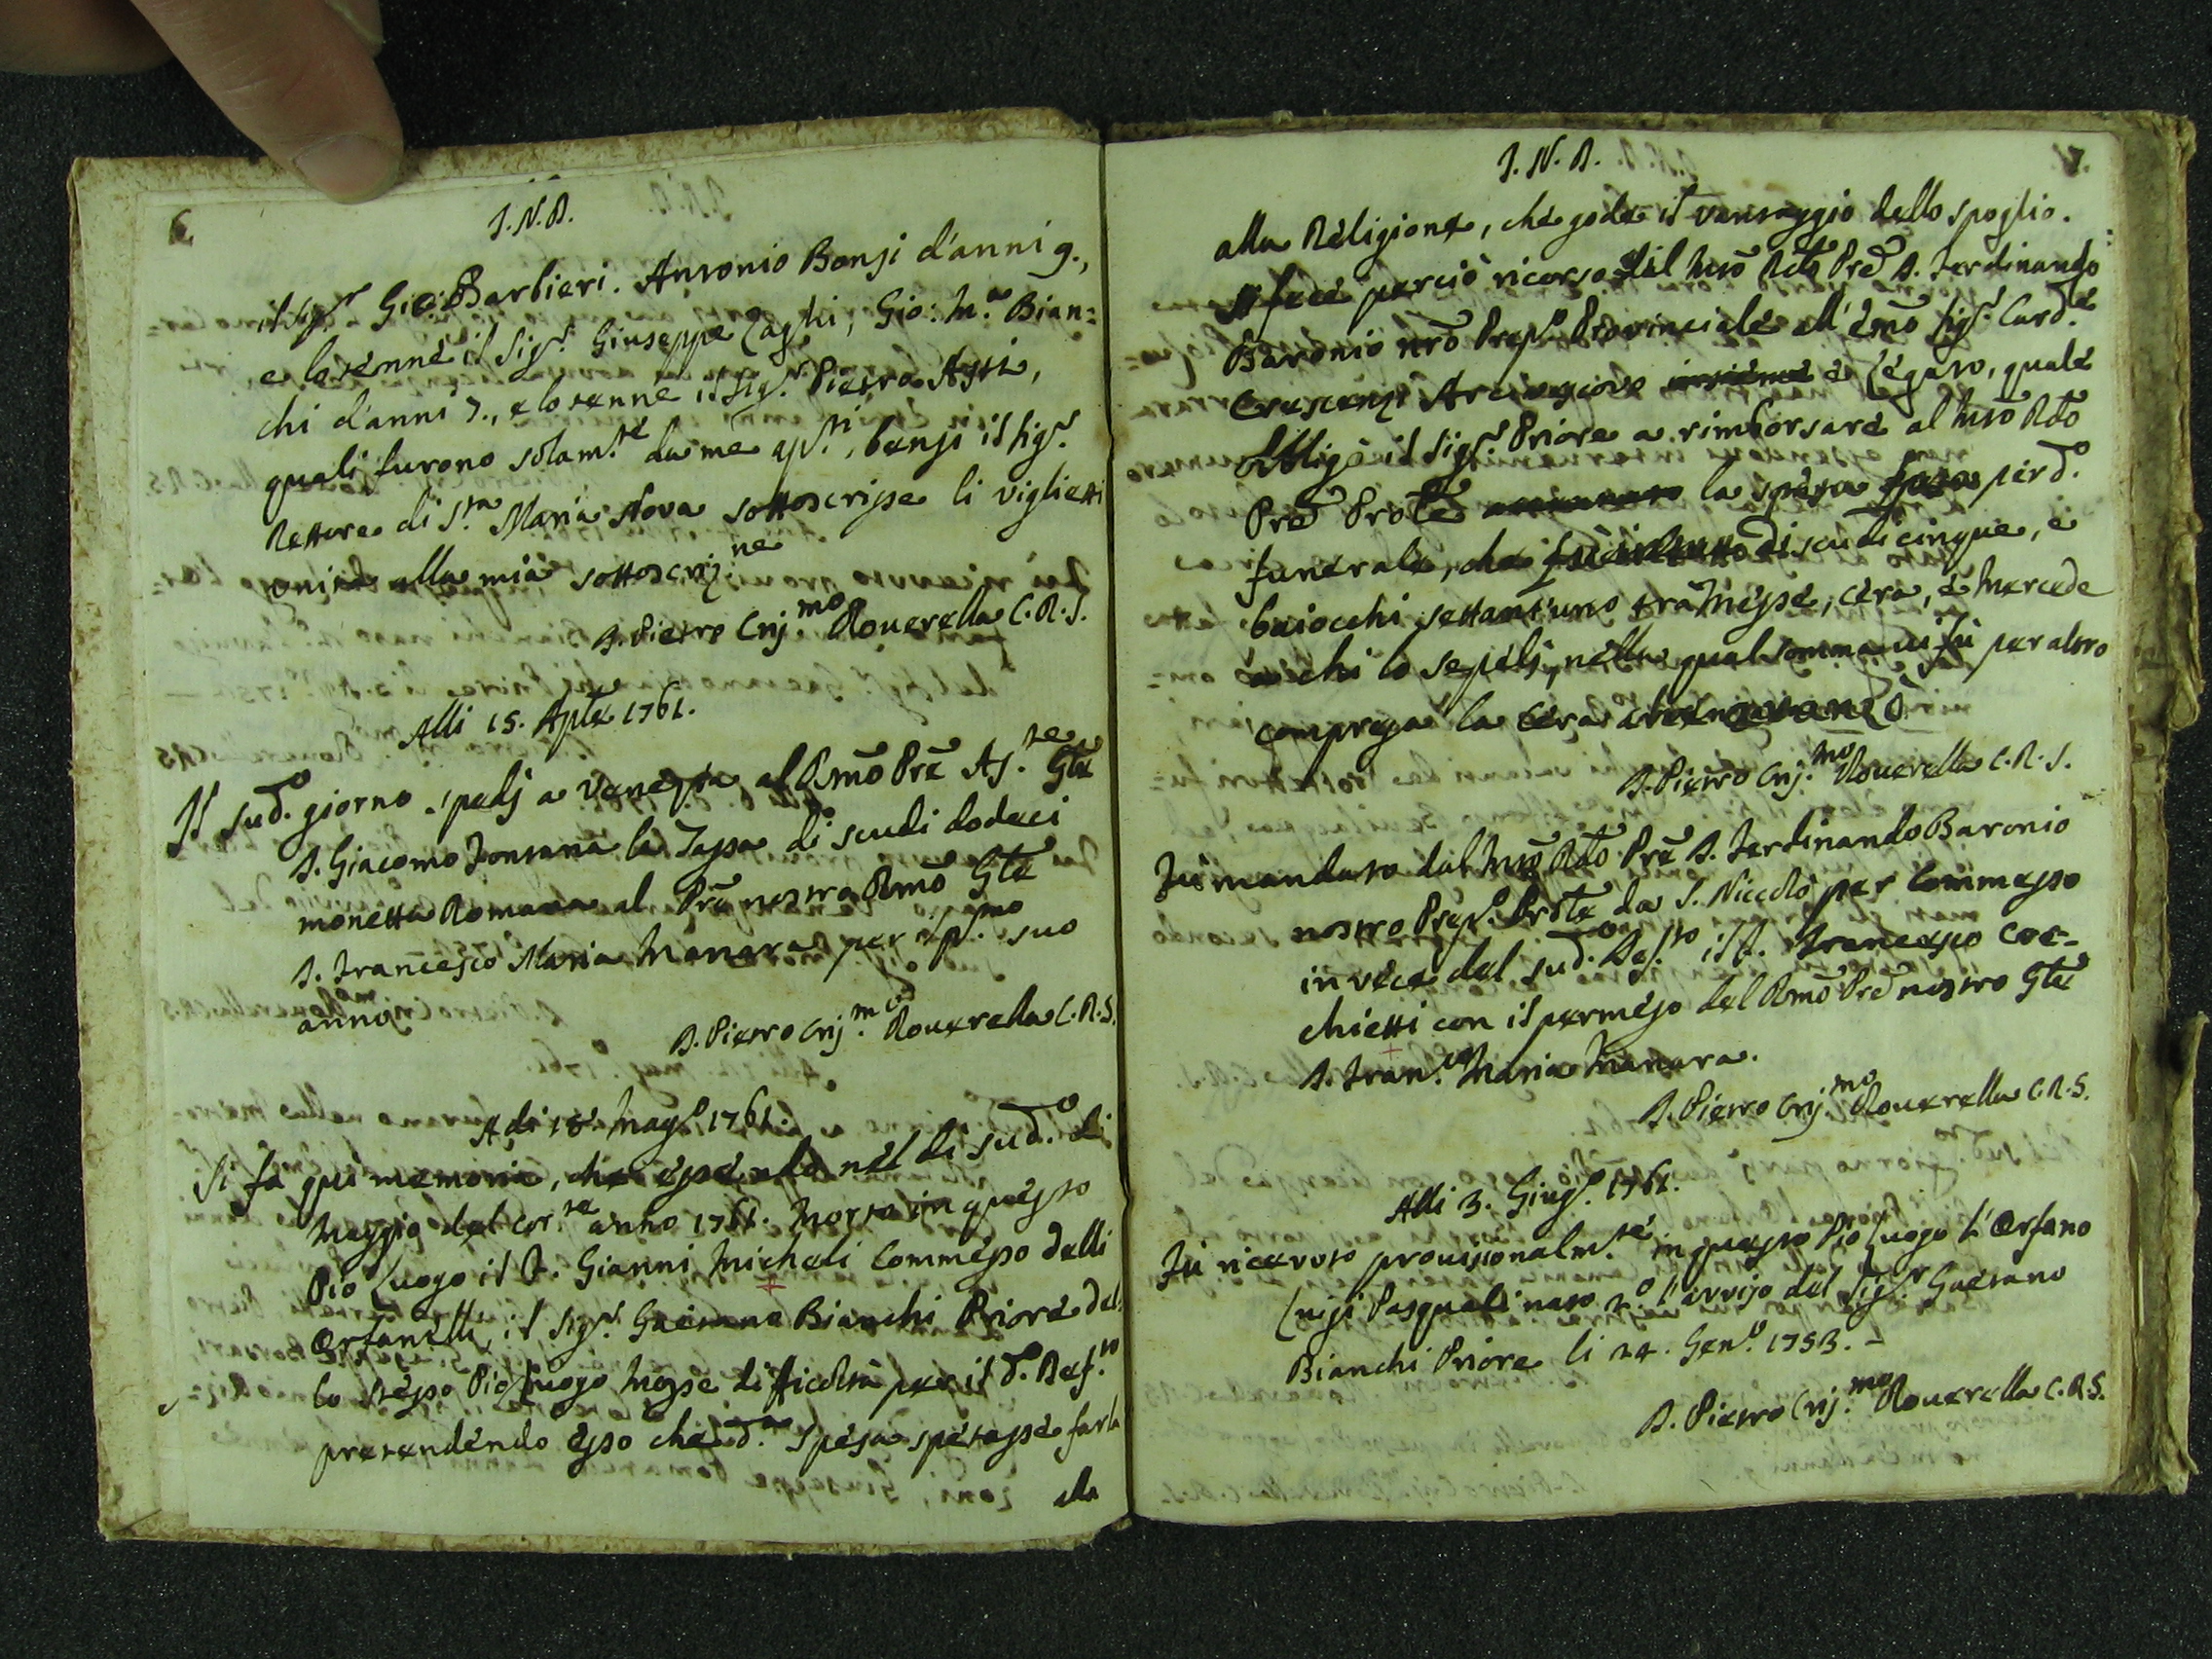 6.
J. N. D.
il Sig.r Gio: Barbieri. Antonio Bonsi d'anni 9.,
e lo tenne il Sig.r Giuseppe Zaghi, Gio: M.a Bian=
chi d'anni 7., e lo tenne il Sig.r Pietro Asti,
quali furono solam.te da me ass.ti, bensì il Sig.r
Rettore di S.ta Maria Nova sottoscrisse li viglietti
unita alla mia sottoscriz.ne
D. Pietro Crij.mo Rouerella C. R. S.
Alli 15. Aple 1761.
Il sud.o giorno spedj a Venezia al Rmõ Prẽ Ass.te Gle
D. Giacomo Fontana la Tassa di scudi dodeci
monetta Romana al Prẽ nostro Rmõ Gle
D. Francesco Maria Manara per il p.mo suo
anno
D. Pietro Crij.mo Rouerella C. R. S.
A di 18. Mag.o 1761.
Si fa qui memoria, che essendo nel di sud.o di
Maggio del cor.te anno 1761. morto in questo
Pio Luogo il F. Gianni Micheli Commesso delli
Orfanelli, il Sig.r Gaetano Bianchi Priore del=
lo stesso Pio Luogo mosse dificoltà per il d.o Def.to
pretendendo esso che d.a spesa spetasse farla
alla
7.
J. N. D.
alla Religione, che gode il vantaggio dello spoglio.
Si fece perciò ricorso dal Mtõ Rdo Prẽ D. Ferdinando
Baronio nrõ Prep.o Provinciale all' Emõ Sig.r Card.le
Crescenzi Arcivescovo e Legato, quale
obligò il Sig.r Priore a rimborsare al Mtõ Rdo
Prẽ Prole la spesa per d.o
funerale, che di scudi cinque, e
baiocchi settant'uno trà Messe, cera, e mercede
a chi lo sepelì, nella qual somma ui fù per altro
compresa la cera che auanzò
D. Pietro Crij.mo Rouerella C. R. S.
Fù mandato dal Mtõ Rdo Prẽ D. Ferdinando Baronio
nostro Prep.o Prole da S. Nicolò per Commesso
in vece del sud.o Def.to il F. Francesco Coc=
chietti con il permesso del Rmõ Prẽ nostro Gle
D. Fran.co Maria Manara.
D. Pietro Crij.mo Rouerella C. R. S.
Alli 3. Giug.o 1761.
Fù riceuuto prouisionalm.te in questo Pio Luogo l'Orfano
Luigi Pasquali nato 2.o l'avviso del Sig.r Gaetano
Bianchi Priore li 24. Gen.o 1753. -
D. Pietro Crij.mo Rouerella C. R. S.